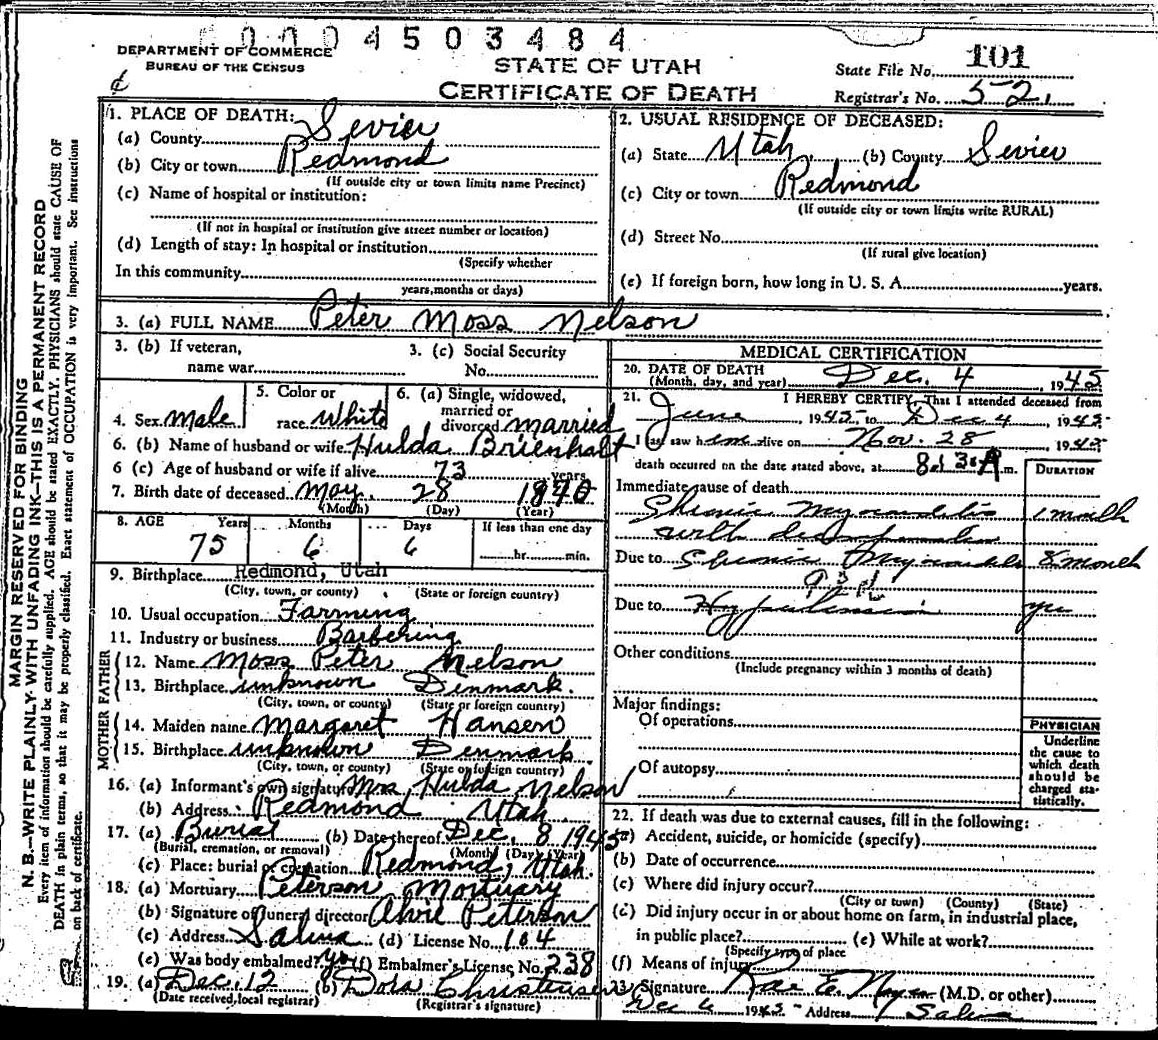 0004503484
DEPARTMENT OF COMMERCE
BUREAU OF THE CENSUS
STATE OF UTAH
CERTIFICATE OF DEATH
State File No. 101
Registrar's No. 52
MARGIN RESERVED FOR BINDING
N. B.—WRITE PLAINLY WITH UNFADING INK—THIS IS A PERMANENT RECORD
Every item of information should be carefully supplied. AGE should be stated EXACTLY. PHYSICIANS should state CAUSE OF
DEATH in plain terms, so that it may be properly classified. Exact statement of OCCUPATION is very important. See instructions
on back of certificate.
1. PLACE OF DEATH:
(a) County Sevier
(b) City or town Redmond
(If outside city or town limits name Precinct)
(c) Name of hospital or institution:
(If not in hospital or institution give street number or location)
(d) Length of stay: In hospital or institution
(Specify whether
In this community
years, months or days)
2. USUAL RESIDENCE OF DECEASED:
(a) State Utah (b) County Sevier
(c) City or town Redmond
(If outside city or town limits write RURAL)
(d) Street No.
(If rural give location)
(e) If foreign born, how long in U. S. A. years.
3. (a) FULL NAME Peter Moss Nelson
3. (b) If veteran,
name war
3. (c) Social Security
No.
4. Sex male
5. Color or
race White
6. (a) Single, widowed,
married or
divorced married
6. (b) Name of husband or wife Hulda Brienholt
6 (c) Age of husband or wife if alive 73 years
7. Birth date of deceased May 28 1870
(Month) (Day) (Year)
8. AGE Years Months Days If less than one day
75 6 6 hr. min.
9. Birthplace Redmond, Utah
(City, town, or county) (State or foreign country)
10. Usual occupation Farming
11. Industry or business Barbering
FATHER
12. Name Moss Peter Nelson
13. Birthplace unknown Denmark.
(City, town, or county) (State or foreign country)
MOTHER
14. Maiden name Margaret Hansen
15. Birthplace unknown Denmark
(City, town, or county) (State or foreign country)
16. (a) Informant's own signature Mrs Hulda Nelson
(b) Address Redmond Utah.
17. (a) Burial (b) Date thereof Dec. 8 1945
(Burial, cremation, or removal) (Month) (Day) (Year)
(c) Place: burial or cremation Redmond, Utah.
18. (a) Mortuary Peterson Mortuary
(b) Signature of funeral director Alvie Peterson
(c) Address Salina (d) License No. 104
(e) Was body embalmed? yes (f) Embalmer's License No. 238
19. (a) Dec. 12 (b) Dora Christensen
(Date received, local registrar) (Registrar's signature)
MEDICAL CERTIFICATION
20. DATE OF DEATH
(Month, day, and year) Dec. 4, 1945
21. I HEREBY CERTIFY, That I attended deceased from
June 1945 to Dec 4 1945
I last saw him alive on Nov. 28 1945
death occurred on the date stated above, at 8:30 A m.
DURATION
Immediate cause of death
Chronic Myocarditis 1 month
with
Due to Chronic Myocarditis 8 month
Due to Hypertension yrs
Other conditions
(Include pregnancy within 3 months of death)
Major findings:
Of operations
Of autopsy
PHYSICIAN
Underline
the cause to
which death
should be
charged sta-
tistically.
22. If death was due to external causes, fill in the following:
(a) Accident, suicide, or homicide (specify)
(b) Date of occurrence
(c) Where did injury occur?
(City or town) (County) (State)
(d) Did injury occur in or about home on farm, in industrial place,
in public place? (e) While at work?
(Specify type of place
(f) Means of injury
23. Signature Rae E. Noyes (M.D. or other)
Dec 6 1945 Address Salina